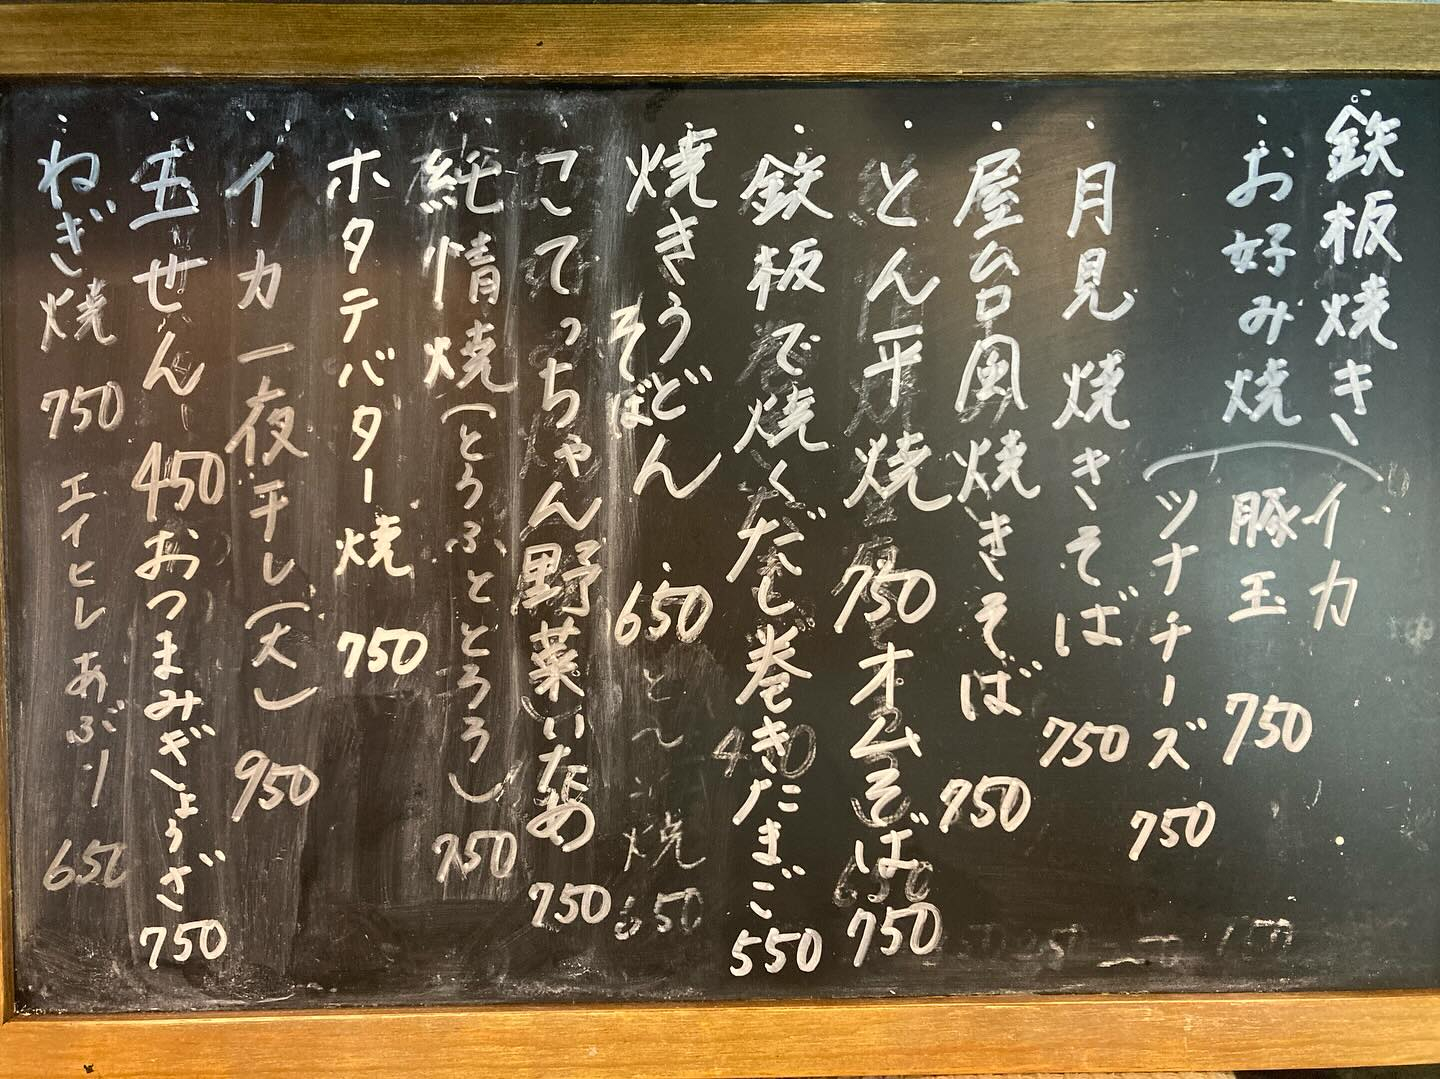 鉄板焼き
お好み焼（イカ 豚玉 750
ツナチーズ 750
月見焼きそば 750
屋台風焼きそば 750
とん平焼 750 オムそば 750
鉄板で焼くだし巻きたまご 550
焼きうどん そば 650
こてっちゃん野菜いため 750
純情焼（とうふととろろ） 750
ホタテバター焼 750
イカ一夜干し（大） 950
玉せん 450 おつまみぎょうざ 750
ねぎ焼 750 エイヒレあぶり 650